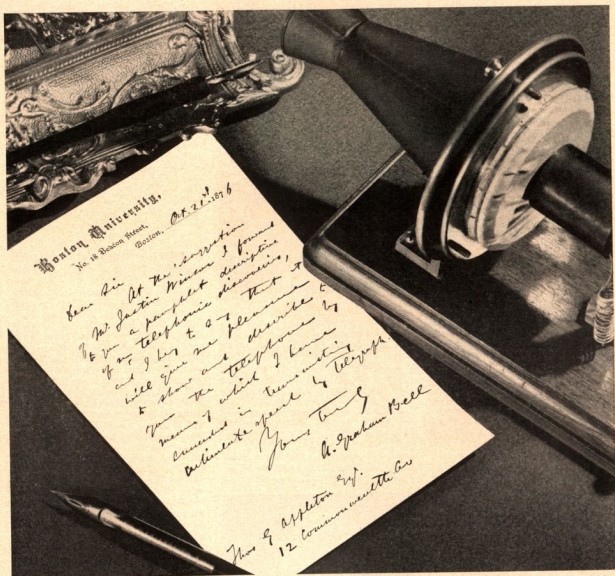 Boston University,
No. 18 Beacon Street,
Boston, Oct. 21st 1876
Dear Sir
At the suggestion
of Mr. Justin Winsor I forward
to you a pamphlet descriptive
of my telephonic discoveries,
and I beg to say that it
will give me pleasure
to show and describe to
you the telephone by
means of which I have
succeeded in transmitting
articulate speech by telegraph.
Yours truly
A. Graham Bell
Thos G Appleton Esq.
12 Commonwealth Ave